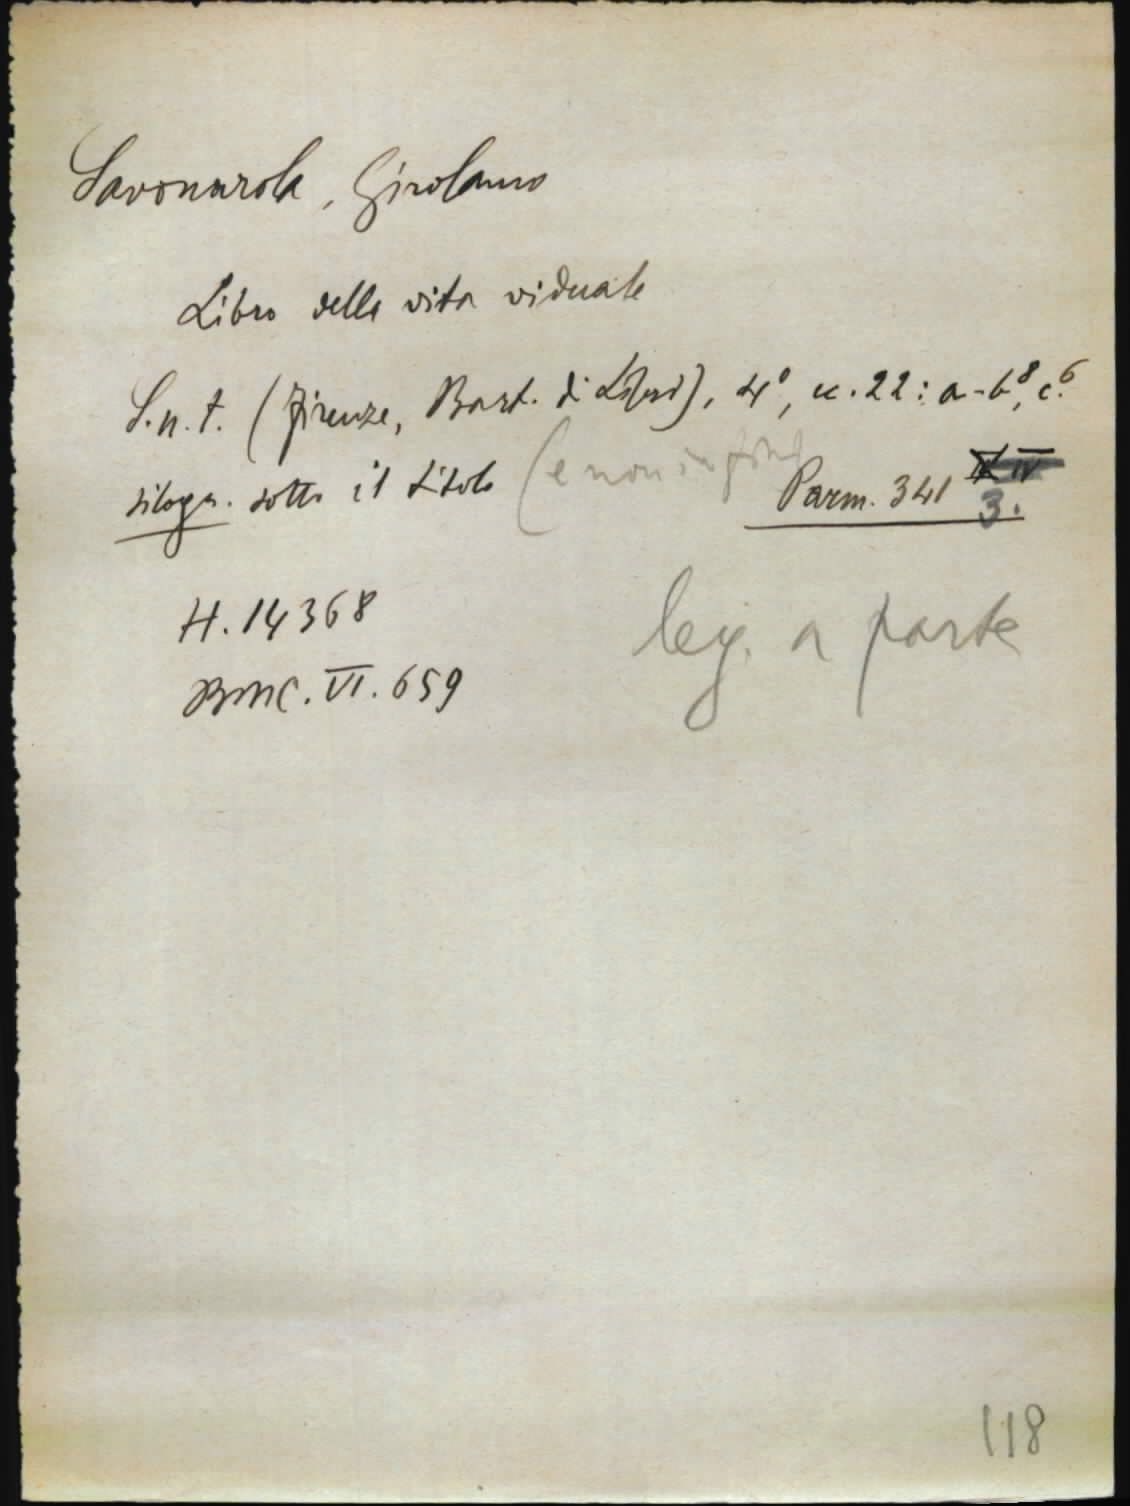 Savonarola, Girolamo
Libro della vita viduale
S.n.t. (Firenze, Bart. di Libri), 4°, cc. 22: a-b⁸, c.⁶
silogr. sotto il titolo (e non in fine
Parm. 341 IV
3.
H. 14368
BMC. VI. 659
leg. a parte
118